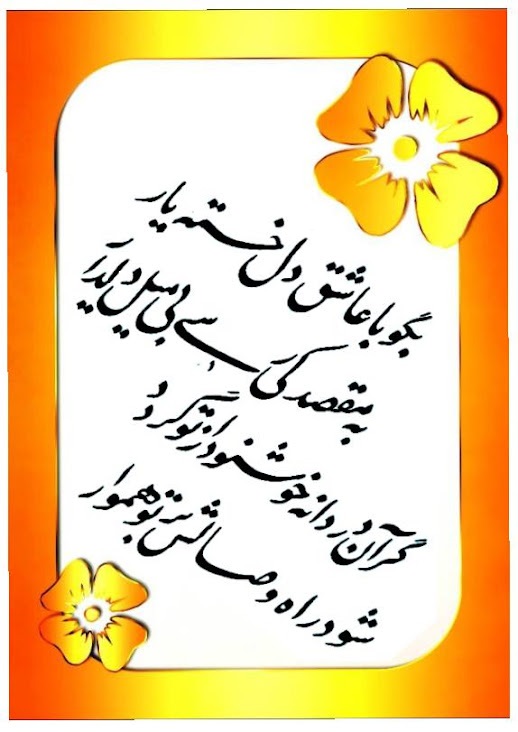 بگو با عاشق دل خسته یار
به مقصد کی رسی بی میل دلدار
گر آن دردانه خوشنود از تو گردد
شود راه وصالش بر تو هموار